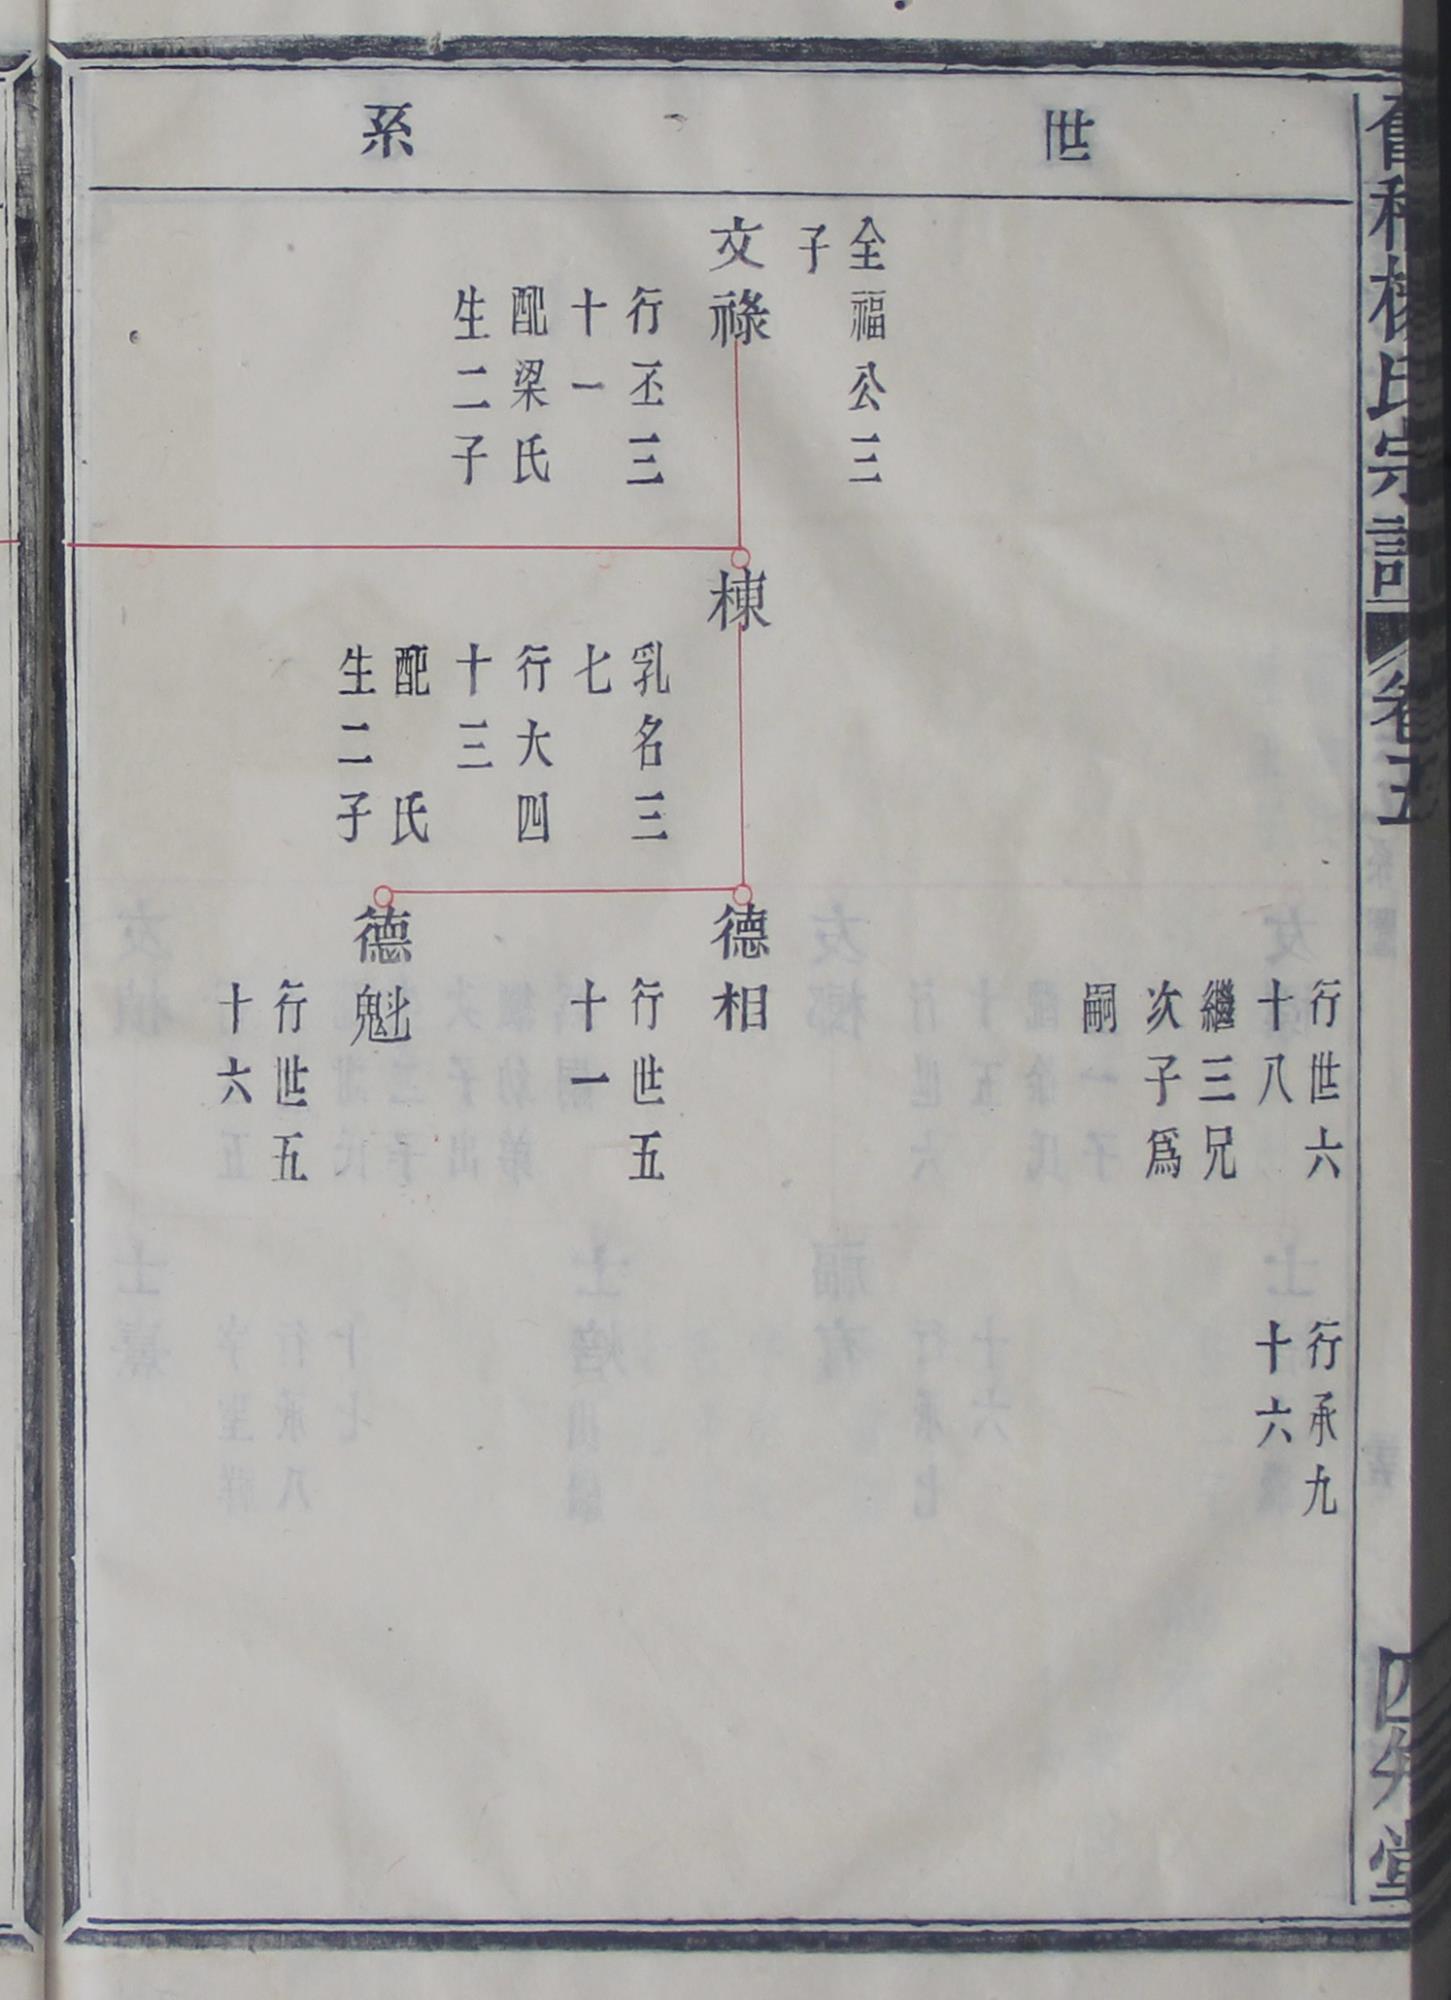 世系
行世六
十八
繼三兄
次子爲
嗣
行承九
十六
全福公三
子
文祿
行丕三
十一
配梁氏
生二子
棟
乳名三
七
行大四
十三
配 氏
生二子
德相
行世五
十一
德魁
行世五
十六
楊氏宗譜
卷五
四知堂